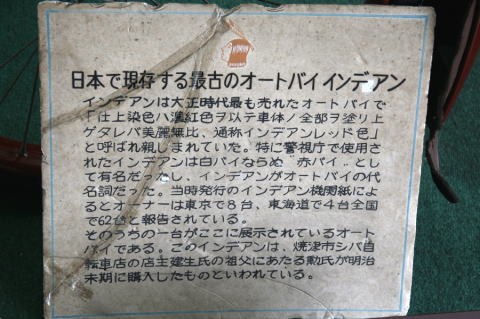 日本で現存する最古のオートバイ インデアン
インデアンは大正時代最も売れたオートバイで
「仕上染色ハ濃紅色ヲ以テ車体ノ全部ヲ塗リ上
ゲタレバ美麗無比、通称インデアンレッド色」
と呼ばれ親しまれていた。特に警視庁で使用さ
れたインデアンは白バイならぬ〝赤バイ〟とし
て有名だったし、インデアンがオートバイの代
名詞だった。当時発行のインデアン機関紙によ
るとオーナーは東京で8台、東海道で4台全国
で62台と報告されている。
そのうちの一台がここに展示されているオート
バイである。このインデアンは、焼津市シバ自
転車店の店主建生氏の祖父にあたる勲氏が明治
末期に購入したものといわれている。